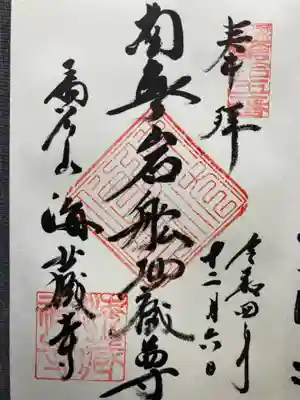 奉拝
令和四年
十二月六日
南無岩船地蔵尊
扇谷山海蔵寺